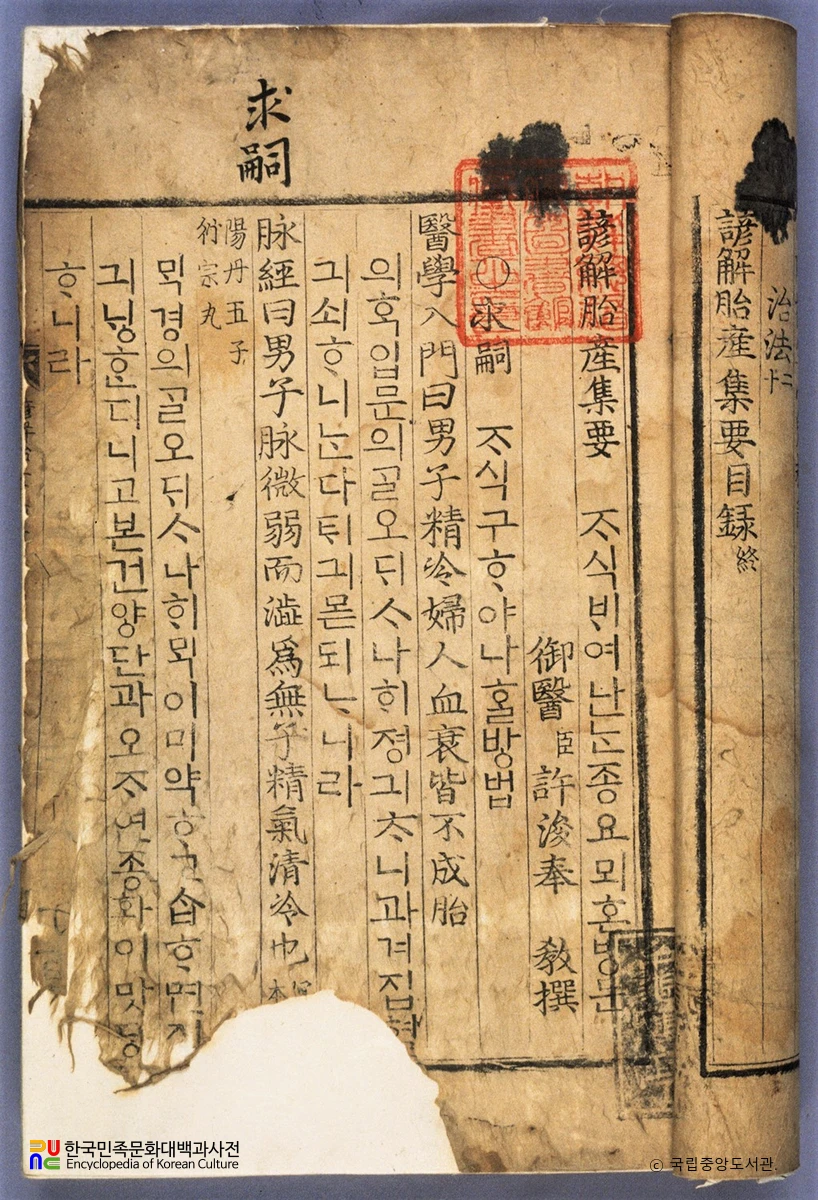 治法
諺解胎産集要目録終
諺解胎産集要 ᄌᆞ식ᄇᆡ여난ᄂᆞᆫ종요뫼혼방문
御醫臣許浚奉 教撰
○求嗣 ᄌᆞ식구ᄒᆞ야나홀방법
醫學入門曰男子精冷婦人血衰皆不成胎
의ᄒᆞᆨ입문의ᄀᆞᆯ오ᄃᆡᄉᆞ나히졍긔ᄎᆞ니과겨집혈
긔쇠ᄒᆞ니ᄂᆞᆫ다ᄐᆡ긔몯되ᄂᆞ니라
求嗣
脉經曰男子脉微弱而澁爲無子精氣清冷也
本
陽丹五子
衍宗丸
ᄆᆡᆨ경의ᄀᆞᆯ오ᄃᆡᄉᆞ나히ᄆᆡᆨ이미약ᄒᆞ고습ᄒᆞ면
긔닝ᄒᆞᆫ디니고본건양단과오ᄌᆞ연종환이맛당
ᄒᆞ니라
한국민족문화대백과사전
Encyclopedia of Korean Culture
© 국립중앙도서관.